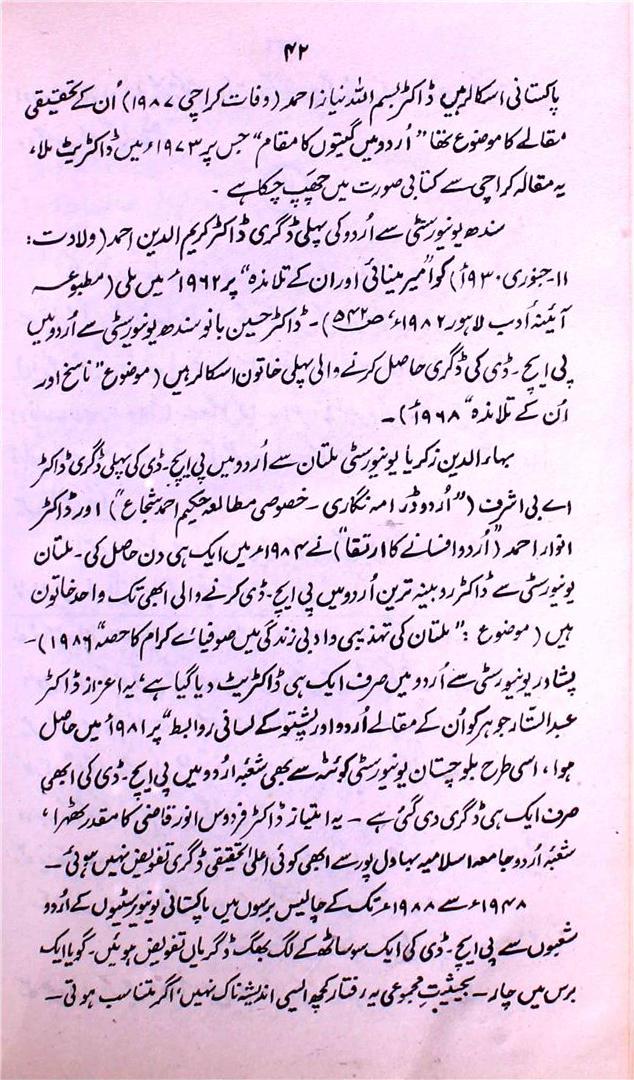 ۴۲
پاکستانی اسکالر ہیں ڈاکٹر بسم اللہ نیاز احمد (وفات کراچی ۱۹۸۷) اُن کے تحقیقی
مقالے کا موضوع تھا "اُردو میں گیتوں کا مقام" جس پر ۱۹۷۳ء میں ڈاکٹریٹ ملا،
یہ مقالہ کراچی سے کتابی صورت میں چھپ چکا ہے ۔
سندھ یونیورسٹی سے اُردو کی پہلی ڈگری ڈاکٹر کریم الدین احمد (ولادت:
۱۱۔جنوری ۱۹۳۰ء) کو "امیر مینائی اور ان کے تلامذہ" پر ۱۹۶۲ء میں ملی (مطبوعہ
آئینۂ اَدب لاہور ۱۹۸۲ء، ص ۵۴۲)۔ ڈاکٹر حسین بانو سندھ یونیورسٹی سے اُردو میں
پی ایچ۔ڈی کی ڈگری حاصل کرنے والی پہلی خاتون اسکالر ہیں (موضوع "ناسخ اور
اُن کے تلامذہ" ۱۹۶۸ء)۔
بہاء الدین زکریا یونیورسٹی ملتان سے اُردو میں پی ایچ۔ڈی کی پہلی ڈگری ڈاکٹر
اے بی اشرف ("اُردو ڈرامہ نگاری ۔ خصوصی مطالعہ حکیم احمد شجاع") اور ڈاکٹر
انوار احمد ("اُردو افسانے کا ارتقا") نے ۱۹۸۴ء میں ایک ہی دن حاصل کی۔ ملتان
یونیورسٹی سے ڈاکٹر روبینہ ترین اُردو میں پی ایچ۔ڈی کرنے والی ابھی تک واحد خاتون
ہیں (موضوع : "ملتان کی تہذیبی و ادبی زندگی میں صوفیائے کرام کا حصہ" ۱۹۸۶)۔
پشاور یونیورسٹی سے اُردو میں صرف ایک ہی ڈاکٹریٹ دیا گیا ہے، یہ اعزاز ڈاکٹر
عبدالستار جوہر کو اُن کے مقالے "اُردو اور پشتو کے لسانی روابط" پر ۱۹۸۱ء میں حاصل
ہوا، اسی طرح بلوچستان یونیورسٹی کوئٹہ سے بھی شعبۂ اردو میں پی ایچ۔ڈی کی ابھی
صرف ایک ہی ڈگری دی گئی ہے ۔ یہ امتیاز ڈاکٹر فردوس انور قاضی کا مقدر ٹھہرا،
شعبۂ اُردو جامعہ اسلامیہ بہاول پور سے ابھی کوئی اعلیٰ تحقیقی ڈگری تفویض نہیں ہوئی۔
۱۹۴۸ء سے ۱۹۸۸ء تک کے چالیس برسوں میں پاکستانی یونیورسٹیوں کے اُردو
شعبوں سے پی ایچ۔ڈی کی ایک سو ساٹھ کے لگ بھگ ڈگریاں تفویض ہوئیں۔ گویا ایک
برس میں چار۔ بحیثیت مجموعی یہ رفتار کچھ ایسی اندیشہ ناک نہیں، اگر متناسب ہوتی۔